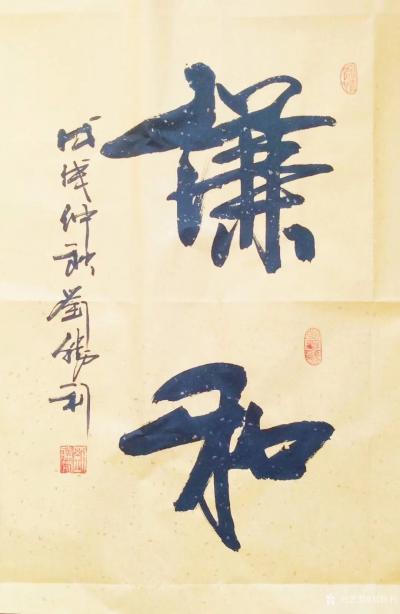 謙和
戊戌仲秋劉勝利